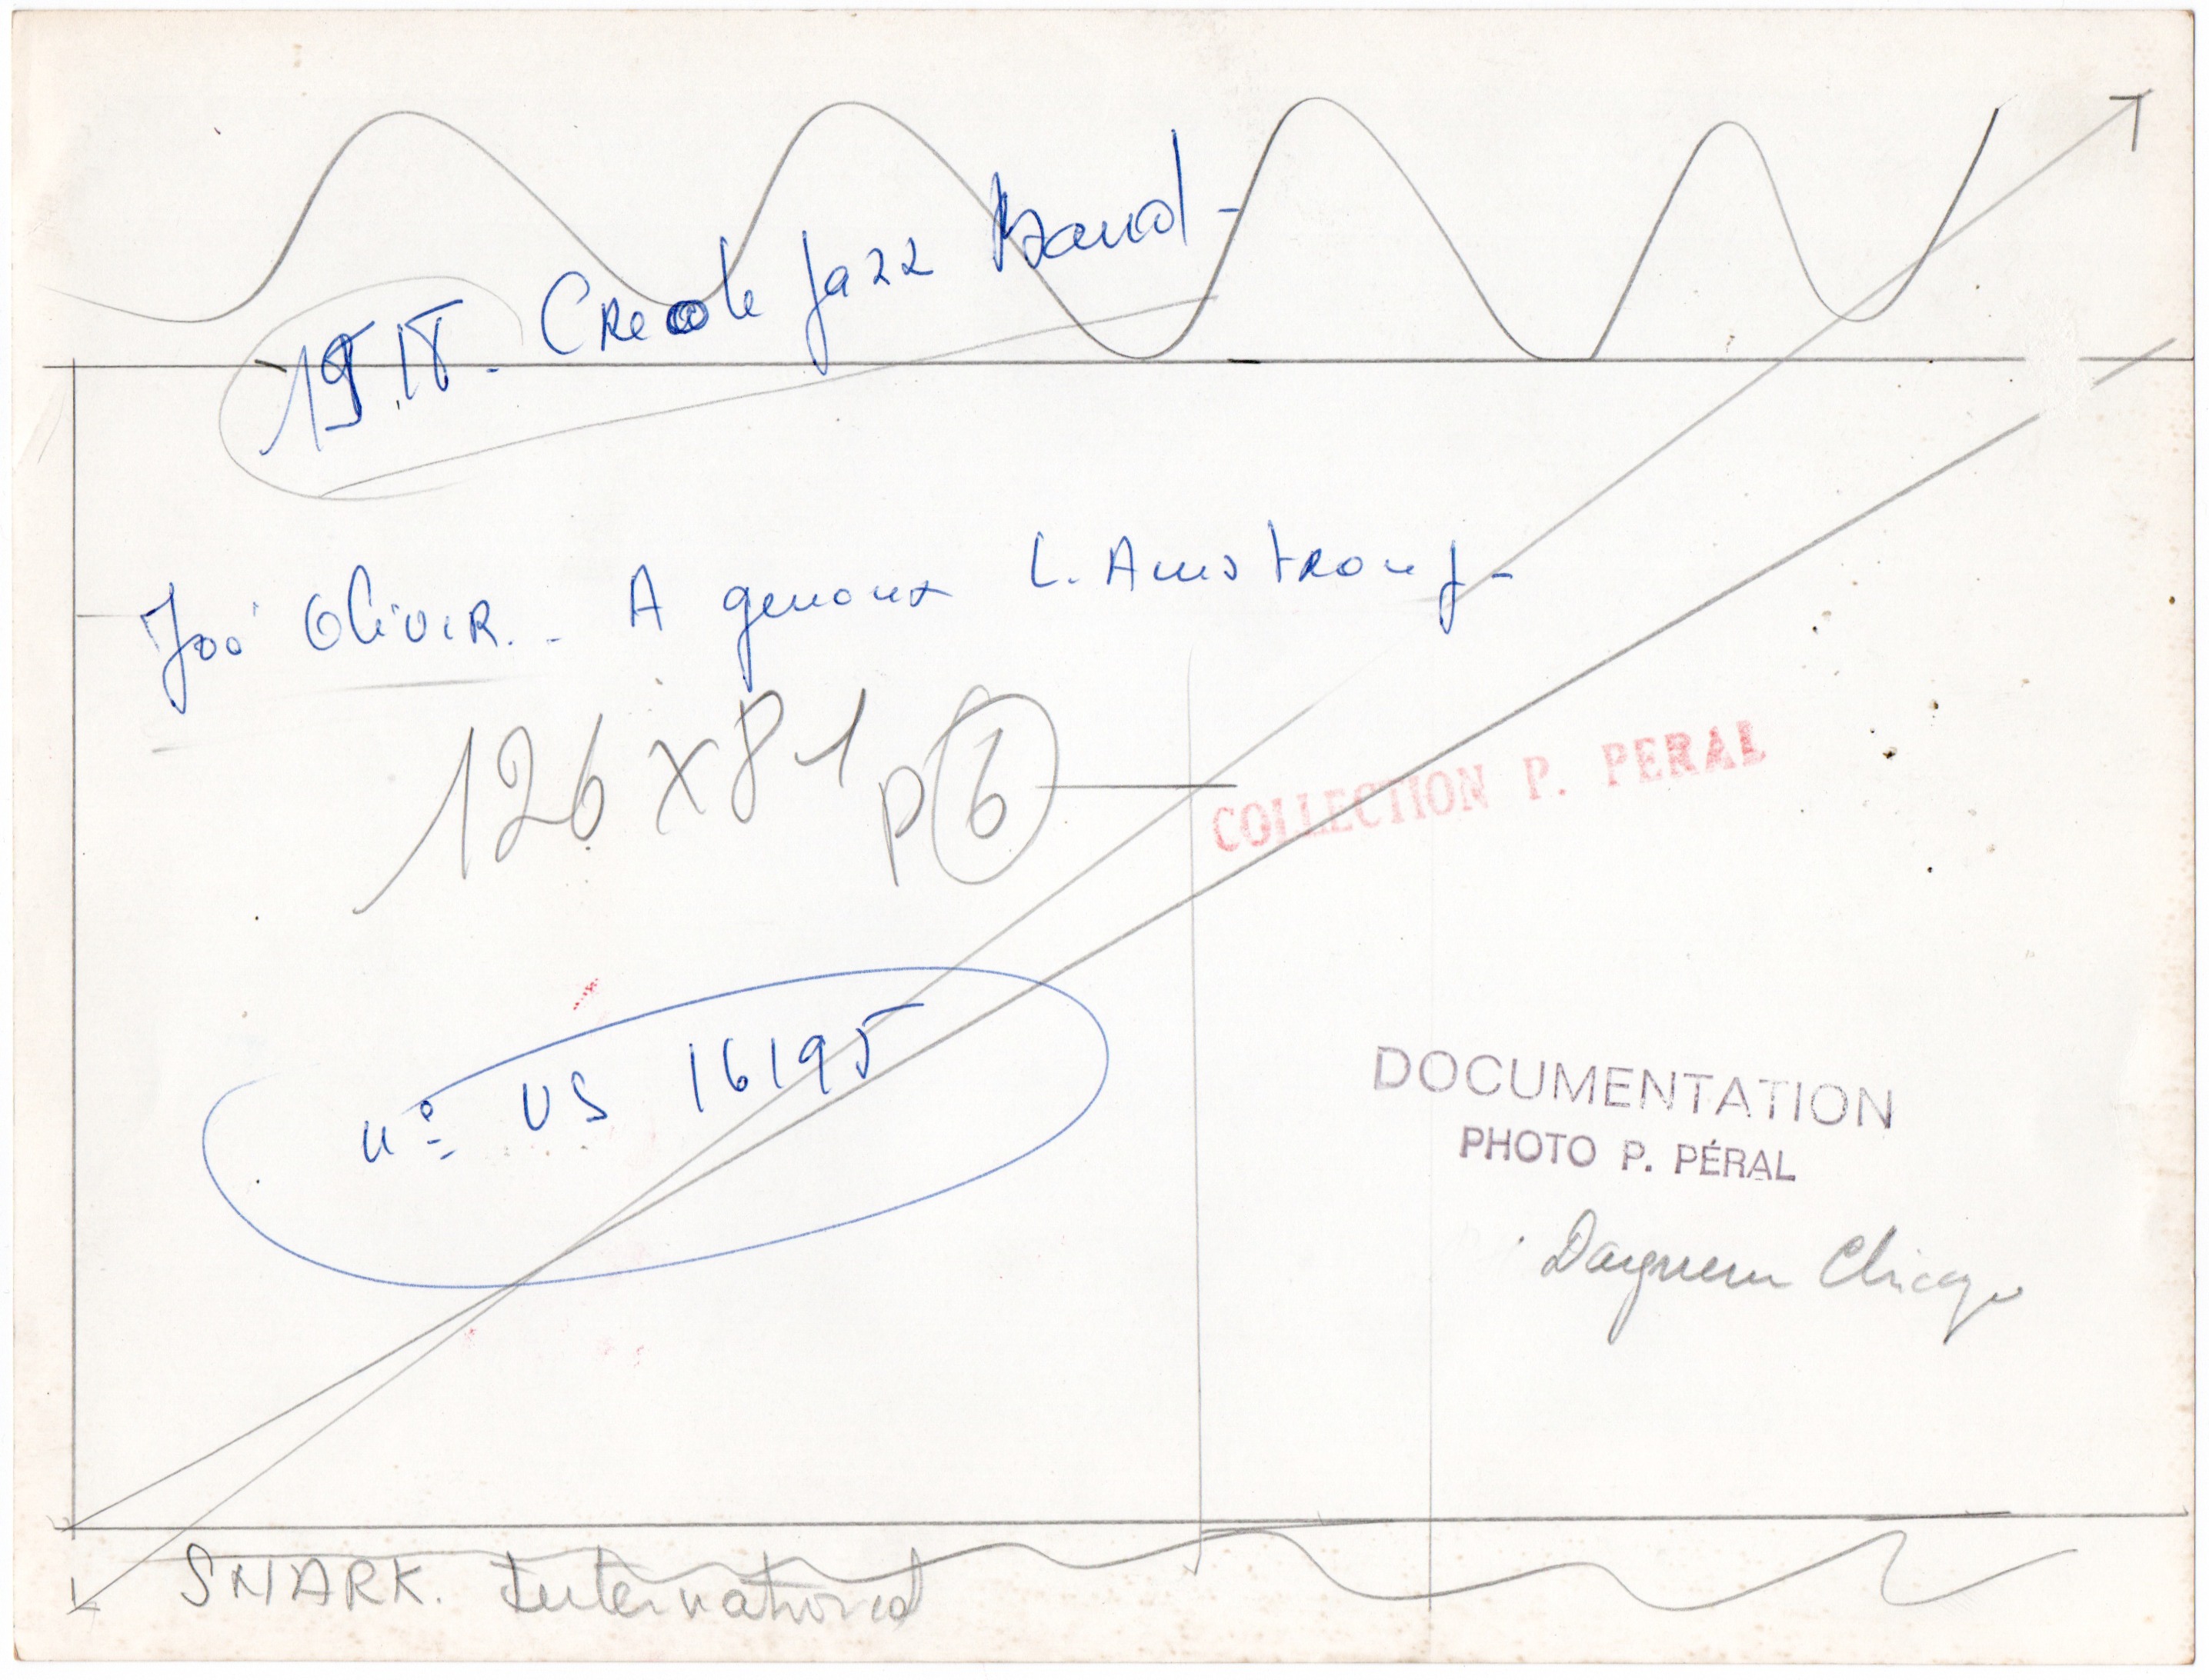 1918. - Creole Jazz Band -
Joë Olivier. - A genoux L. Amstrong -
126 x 81 p 6
COLLECTION P. PERAL
n° US 16195
DOCUMENTATION
PHOTO P. PÉRAL
Chicago
SNARK. International